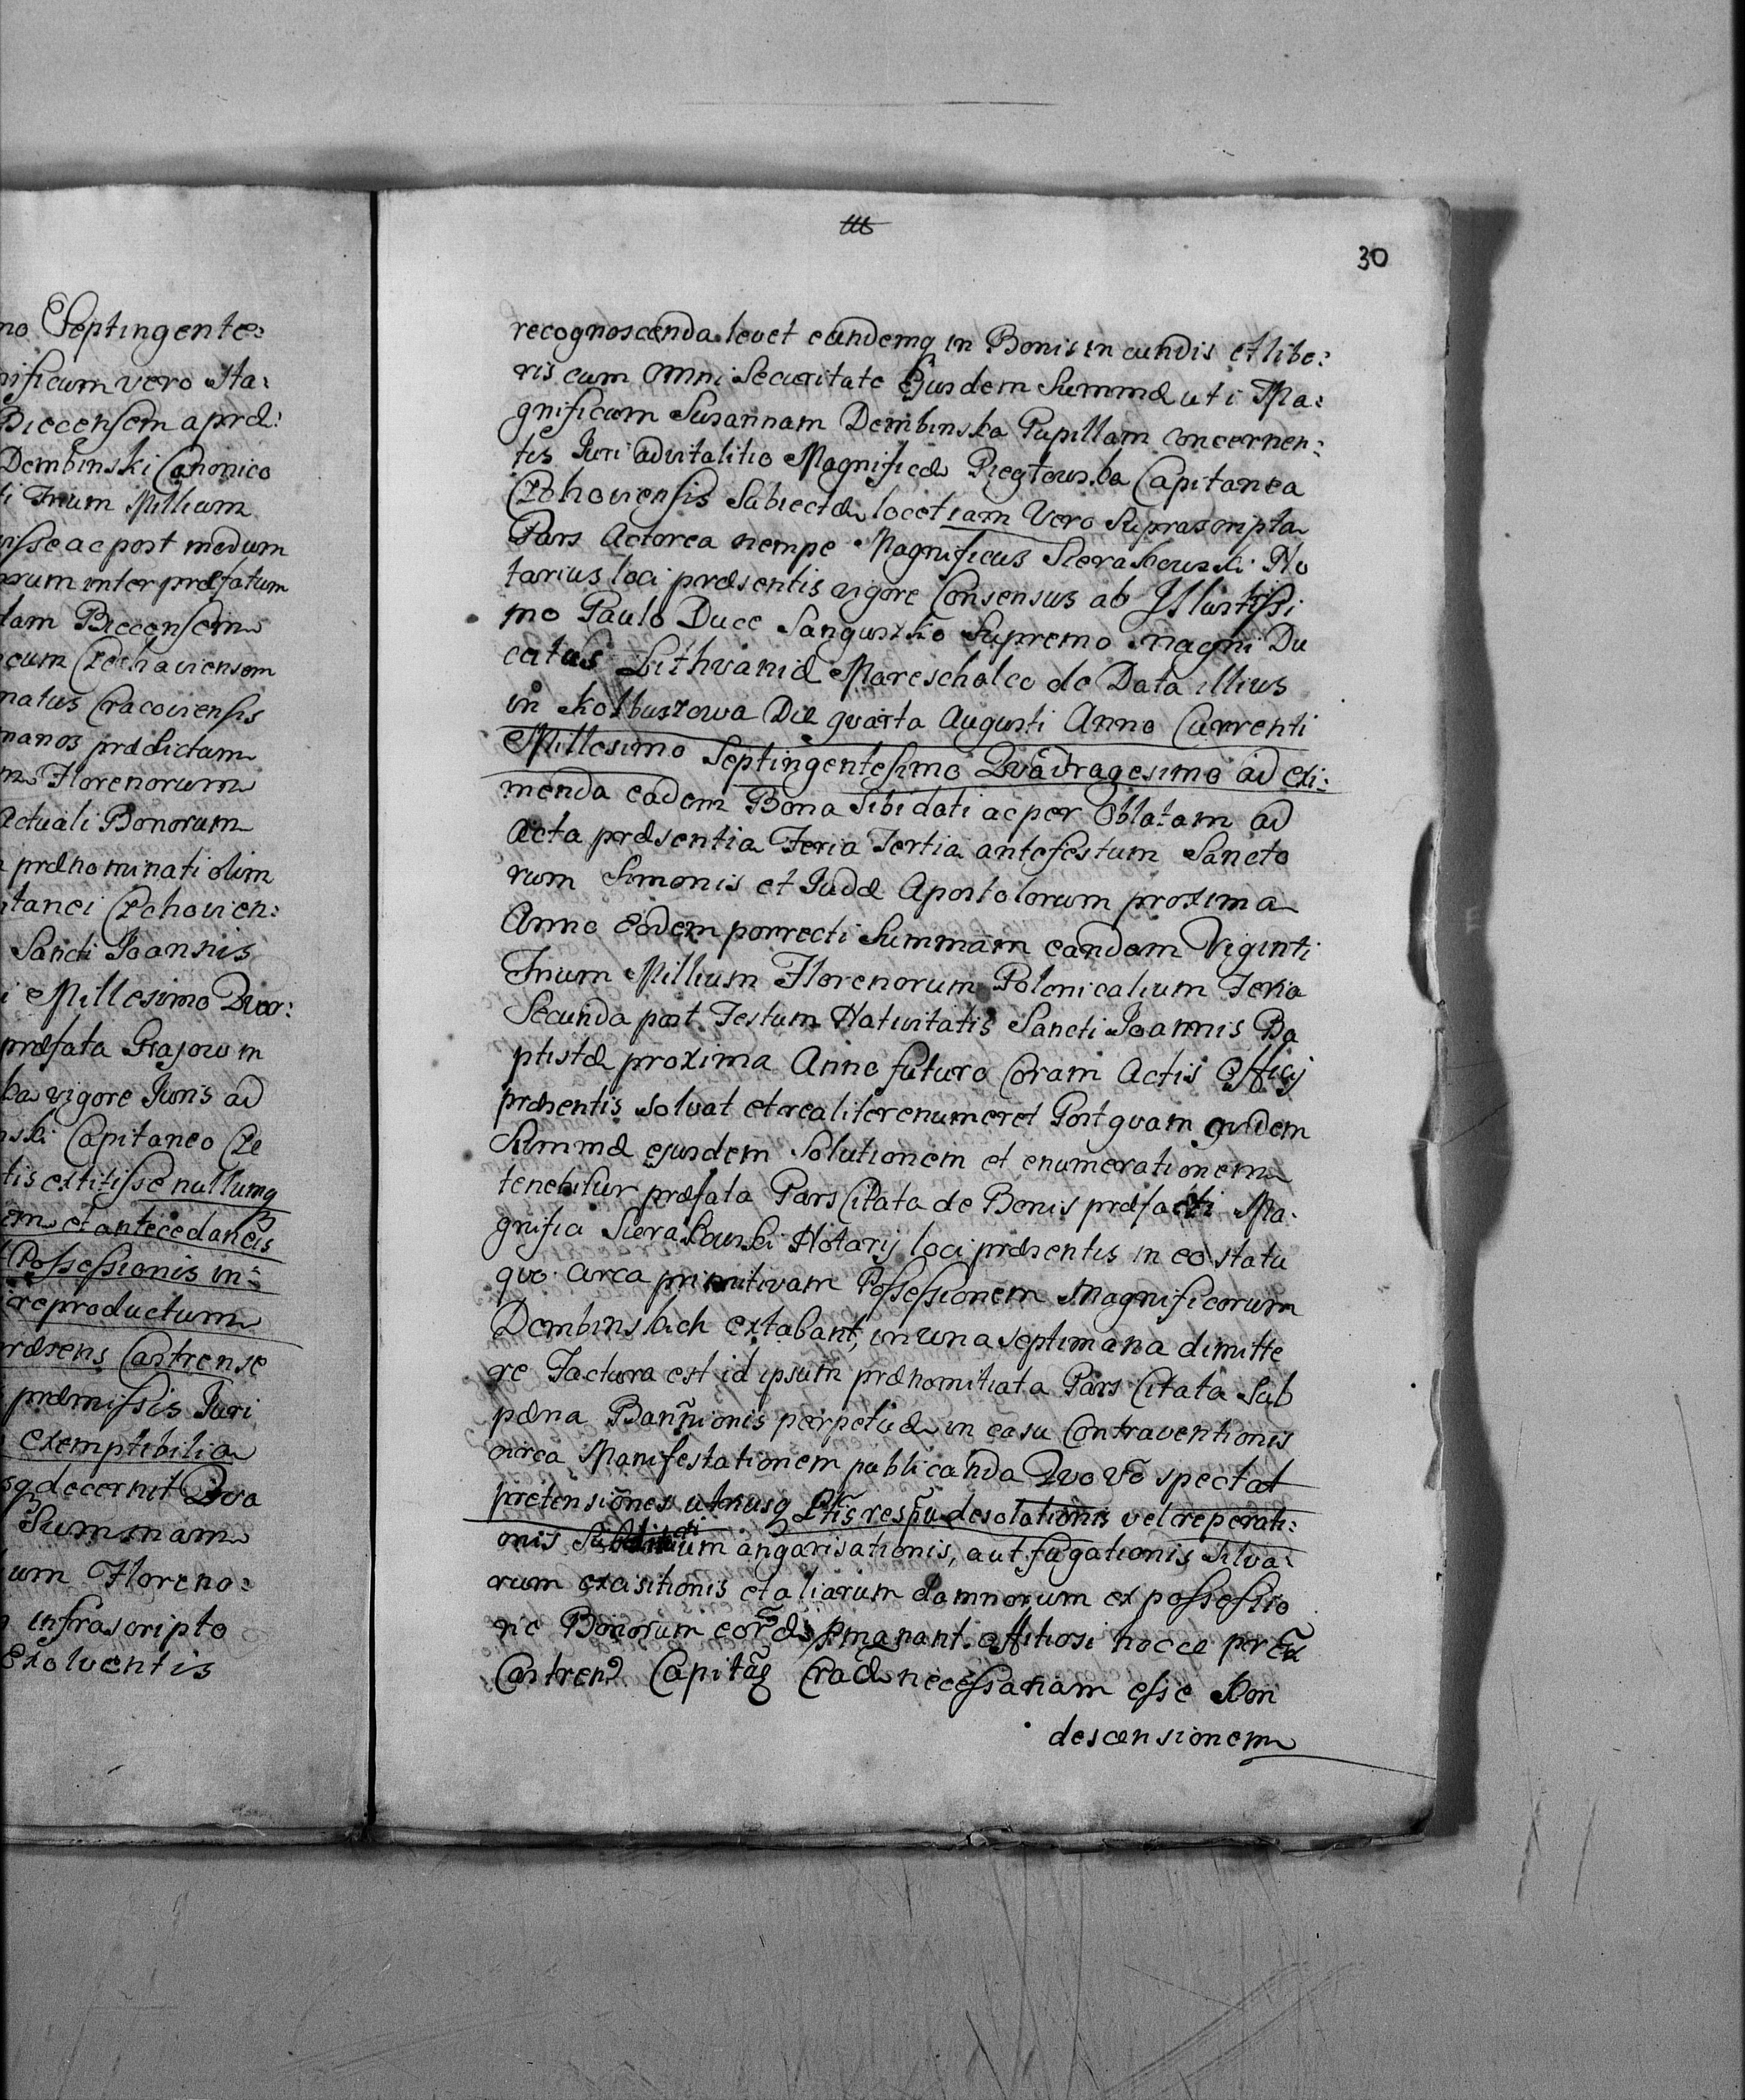 no Septingente:
nificum vero Sta:
Biecensem a præ:
Dembinski Canonico
ti Trium Millium
nisse ac post modum
rum inter præfatum
tam Biecensem
cum Czchoviensem
natus Cracoviensis
manos prædictam
m Florenorum
Actuali Bonorum
prænominati olim
itanei Czchovien:
Sancti Joannis
i Millesimo Qua:
præfata Grajow in
ba vigore Juris ad
nski Capitaneo Cze
tis extitisse nullumq
em et antecedaneis
Possessionis in:
reproductum
præsens Castrense
præmissis Juri
exemptibilia
sq decernit Quo
Summam
um Floreno:
infrascripto
Exolventis
30
recognoscenda levet eandemq in Bonis in cundis et libe:
ris cum Omni Securitate Ejusdem Summæ uti Ma:
gnificum Susannam Dembinska Pupillam concernen:
tis Juri advitalitio Magnificæ Piegłowska Capitanea
Czchoviensis Subiectæ locet iam Vero Suprascripta
Pars Actorea nempe Magnificus Sierakowski No
tarius loci præsentis vigore Consensus ab Illustrissi
mo Paulo Duce Sanguszko Supremo magni Du
catus Lithvaniæ Mareschalco de Data illius
in Kolbuszowa Die quarta Augusti Anno Currenti
Millesimo Septingentesimo Quadragesimo ad exi:
menda eadem Bona sibi dati ac per Oblatam ad
Acta præsentia Feria Tertia ante festum Sancto
rum Simonis et Judæ Apostolorum proxima
Anno Eodem porrecti Summam eandem Viginti
Trium Millium Florenorum Polonicalium Feria
Secunda post Festum Nativitatis Sancti Joannis Ba
ptistæ proxima Anno futuro Coram Actis Officij
præsentis solvat et realiter enumeret Post quam quidem
Summæ ejusdem Solutionem et enumerationem
tenebitur præfata Pars Citata de Bonis præfacti Ma:
gnifici Sierakowski Notarij loci præsentis in eo statu
quo circa primitivam Possessionem Magnificorum
Dembinskich extabant, in una septimana dimitte
re Factura est id ipsum prænomitiata Pars Citata Sub
pæna Banñionis perpetuæ in casu Contraventionis
circa Manifestationem publicanda Quo vō spectat
pretensiones utriusq Ptis respu desolationis vel reperati:
onis Subditum angarisationis, aut fugationis Silva:
rum excisitionis et aliarum damnorum ex possessio
ne Bonorum eord emanant. offitiosi hocce
Castren Capitaq necessariam esse Con
descensionem